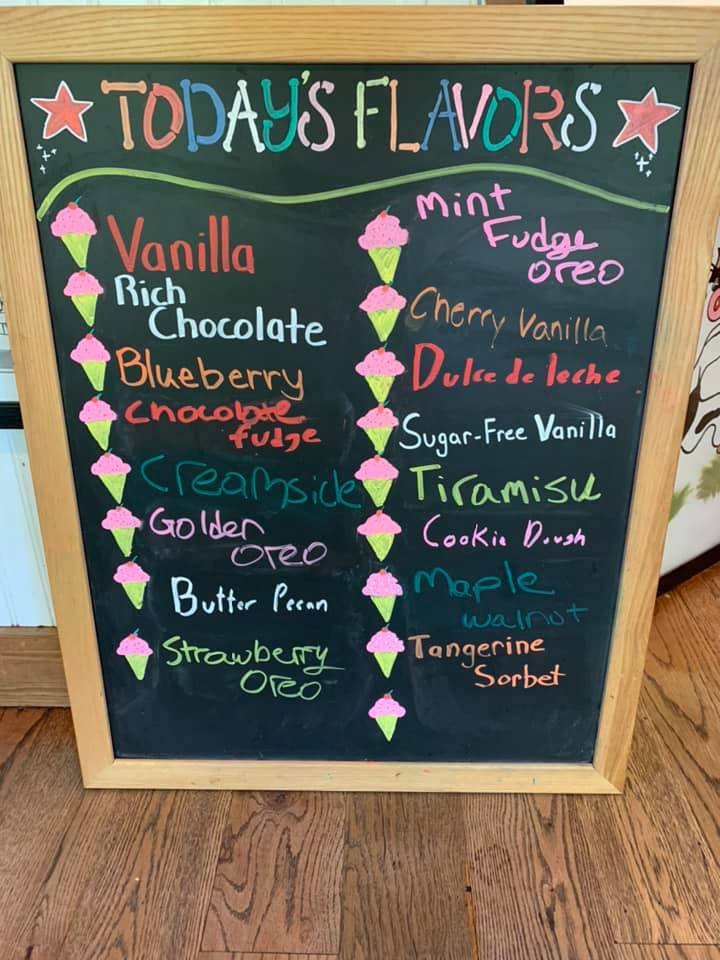 TODAY'S FLAVORS
Vanilla
Rich
Chocolate
Blueberry
Chocolate
fudge
Creamsicle
Golden
Oreo
Butter Pecan
Strawberry
Oreo
Mint
Fudge
Oreo
Cherry Vanilla
Dulce de leche
Sugar-Free Vanilla
Tiramisu
Cookie Dough
Maple
walnut
Tangerine
Sorbet